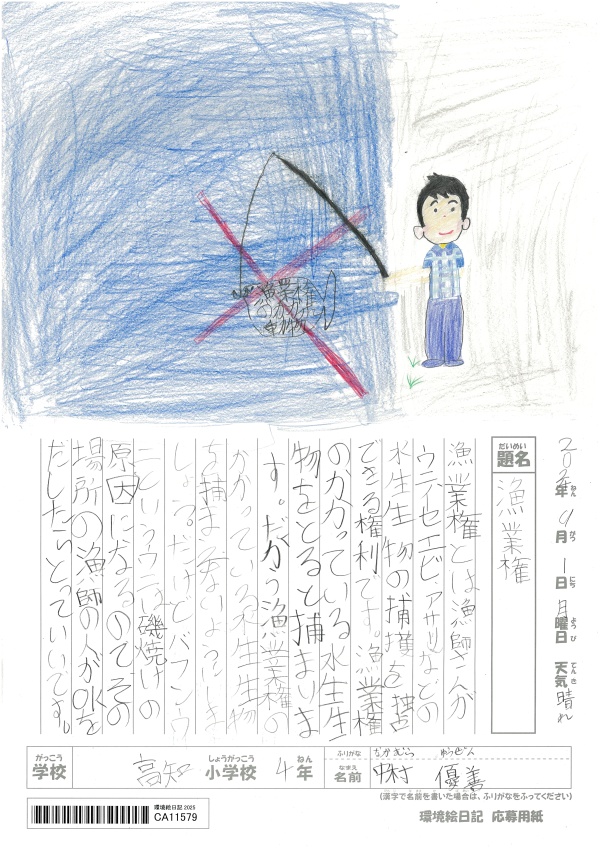 漁業権
2025年 9月 1日 月曜日 天気 晴れ
ねん がつ にち ようび てんき
だいめい
題名
漁業権
漁業権とは漁師さんが
ウニ、イセエビ、アサリなどの
水生生物の捕獲を独占
できる権利です。漁業権
のかかっている水生生
物をとると捕まりま
す。だから漁業権の
かかっている水生生物
を捕まえないようにしま
しょう。だけどバフンウ
ニというウニは磯焼けの
原因になるのでその
場所の漁師の人がOKを
だしたらとっていいです。
がっこう しょうがっこう ねん
学校 高知 小学校 4年
ふりがな なかむら ゆうぜん
なまえ
名前 中村 優善
(漢字で名前を書いた場合は、ふりがなをふってください)
環境絵日記 2025
CA11579
環境絵日記 応募用紙